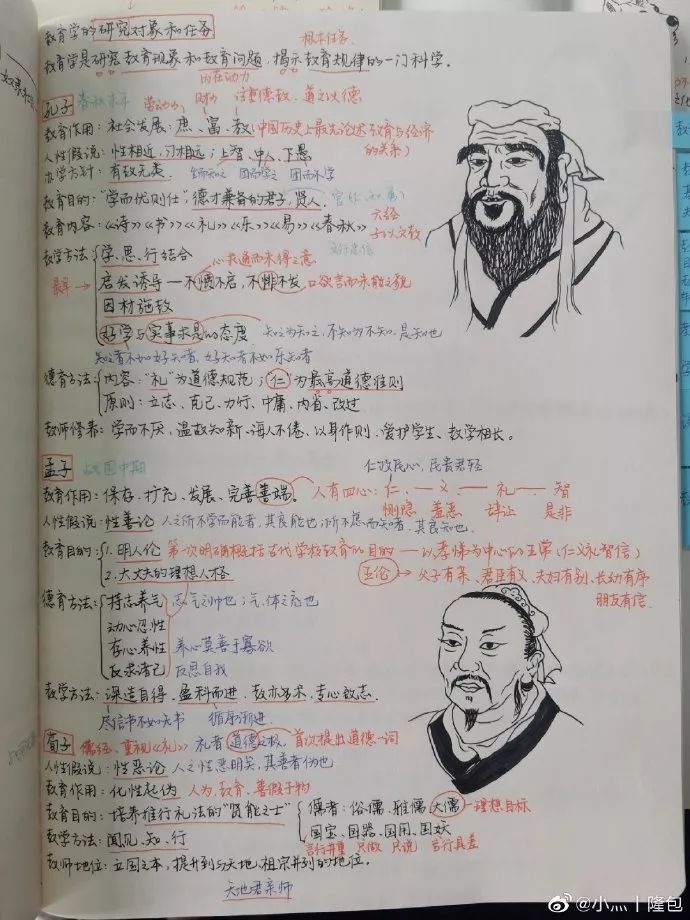 教育学的研究对象和任务
根本任务
教育学是研究教育现象和教育问题，揭示教育规律的一门科学。
内在动力
孔子 春秋末 劳动力 财力 注重德教，道之以德
教育作用：社会发展：庶、富、教（中国历史上最先论述教育与经济的关系）
人性假说：性相近，习相远；上智、中人、下愚
办学方针：有教无类 生而知之 困而学之 困而不学
教育目的："学而优则仕"德才兼备的君子，贤人。
教育内容：《诗》《书》《礼》《乐》《易》《春秋》 六经
子以四教
教学方法：学、思、行结合 心求通而未得之意
最早→ 启发诱导—不愤不启，不悱不发 口欲言而未能之貌
因材施教
好学与实事求是的态度 知之为知之，不知为不知，是知也
知之者不如好之者，好之者不如乐之者
德育方法：内容："礼"为道德规范；"仁"为最高道德准则
原则：立志、克己、力行、中庸、内省、改过
教师修养：学而不厌，温故知新、诲人不倦、以身作则、爱护学生、教学相长。
孟子 战国中期 民贵君轻
教育作用：保存、扩充、发展、完善善端。人有四心：仁、—义、—礼、—智
恻隐 羞恶 辞让 是非
人性假说：性善论 人之所不学而能者，其良能也；所不想而知者，其良知也。
教育目的：1.明人伦 第一次明确概括古代学校教育的目的—以孝悌为中心的五常（仁义礼智信）
2.大丈夫的理想人格 五伦→父子有亲、君臣有义、夫妇有别、长幼有序
朋友有信
德育方法：持志养气 志气之帅也；气，体之充也
动心忍性
存心养性 养心莫善于寡欲
反求诸己 反思自我
教学方法：深造自得、盈科而进、教亦多术、专心致志。
尽信书不如无书 循序渐进
荀子 儒经，重视《礼》 礼者道德之极。首次提出道德一词
人性假说：性恶论 人之性恶明矣，其善者伪也
教育作用：化性起伪 人为，教育，善假于物
教育目的：培养推行礼法的"贤能之士" 儒者：俗儒、雅儒、大儒—理想目标
国宝、国器、国用、国妖
教学方法：闻见、知、行 言行并重 只做 只说 言行具差
教师地位：立国之本，提升到与天地、祖宗并列的地位。
天地君亲师
@小灬丨隆包